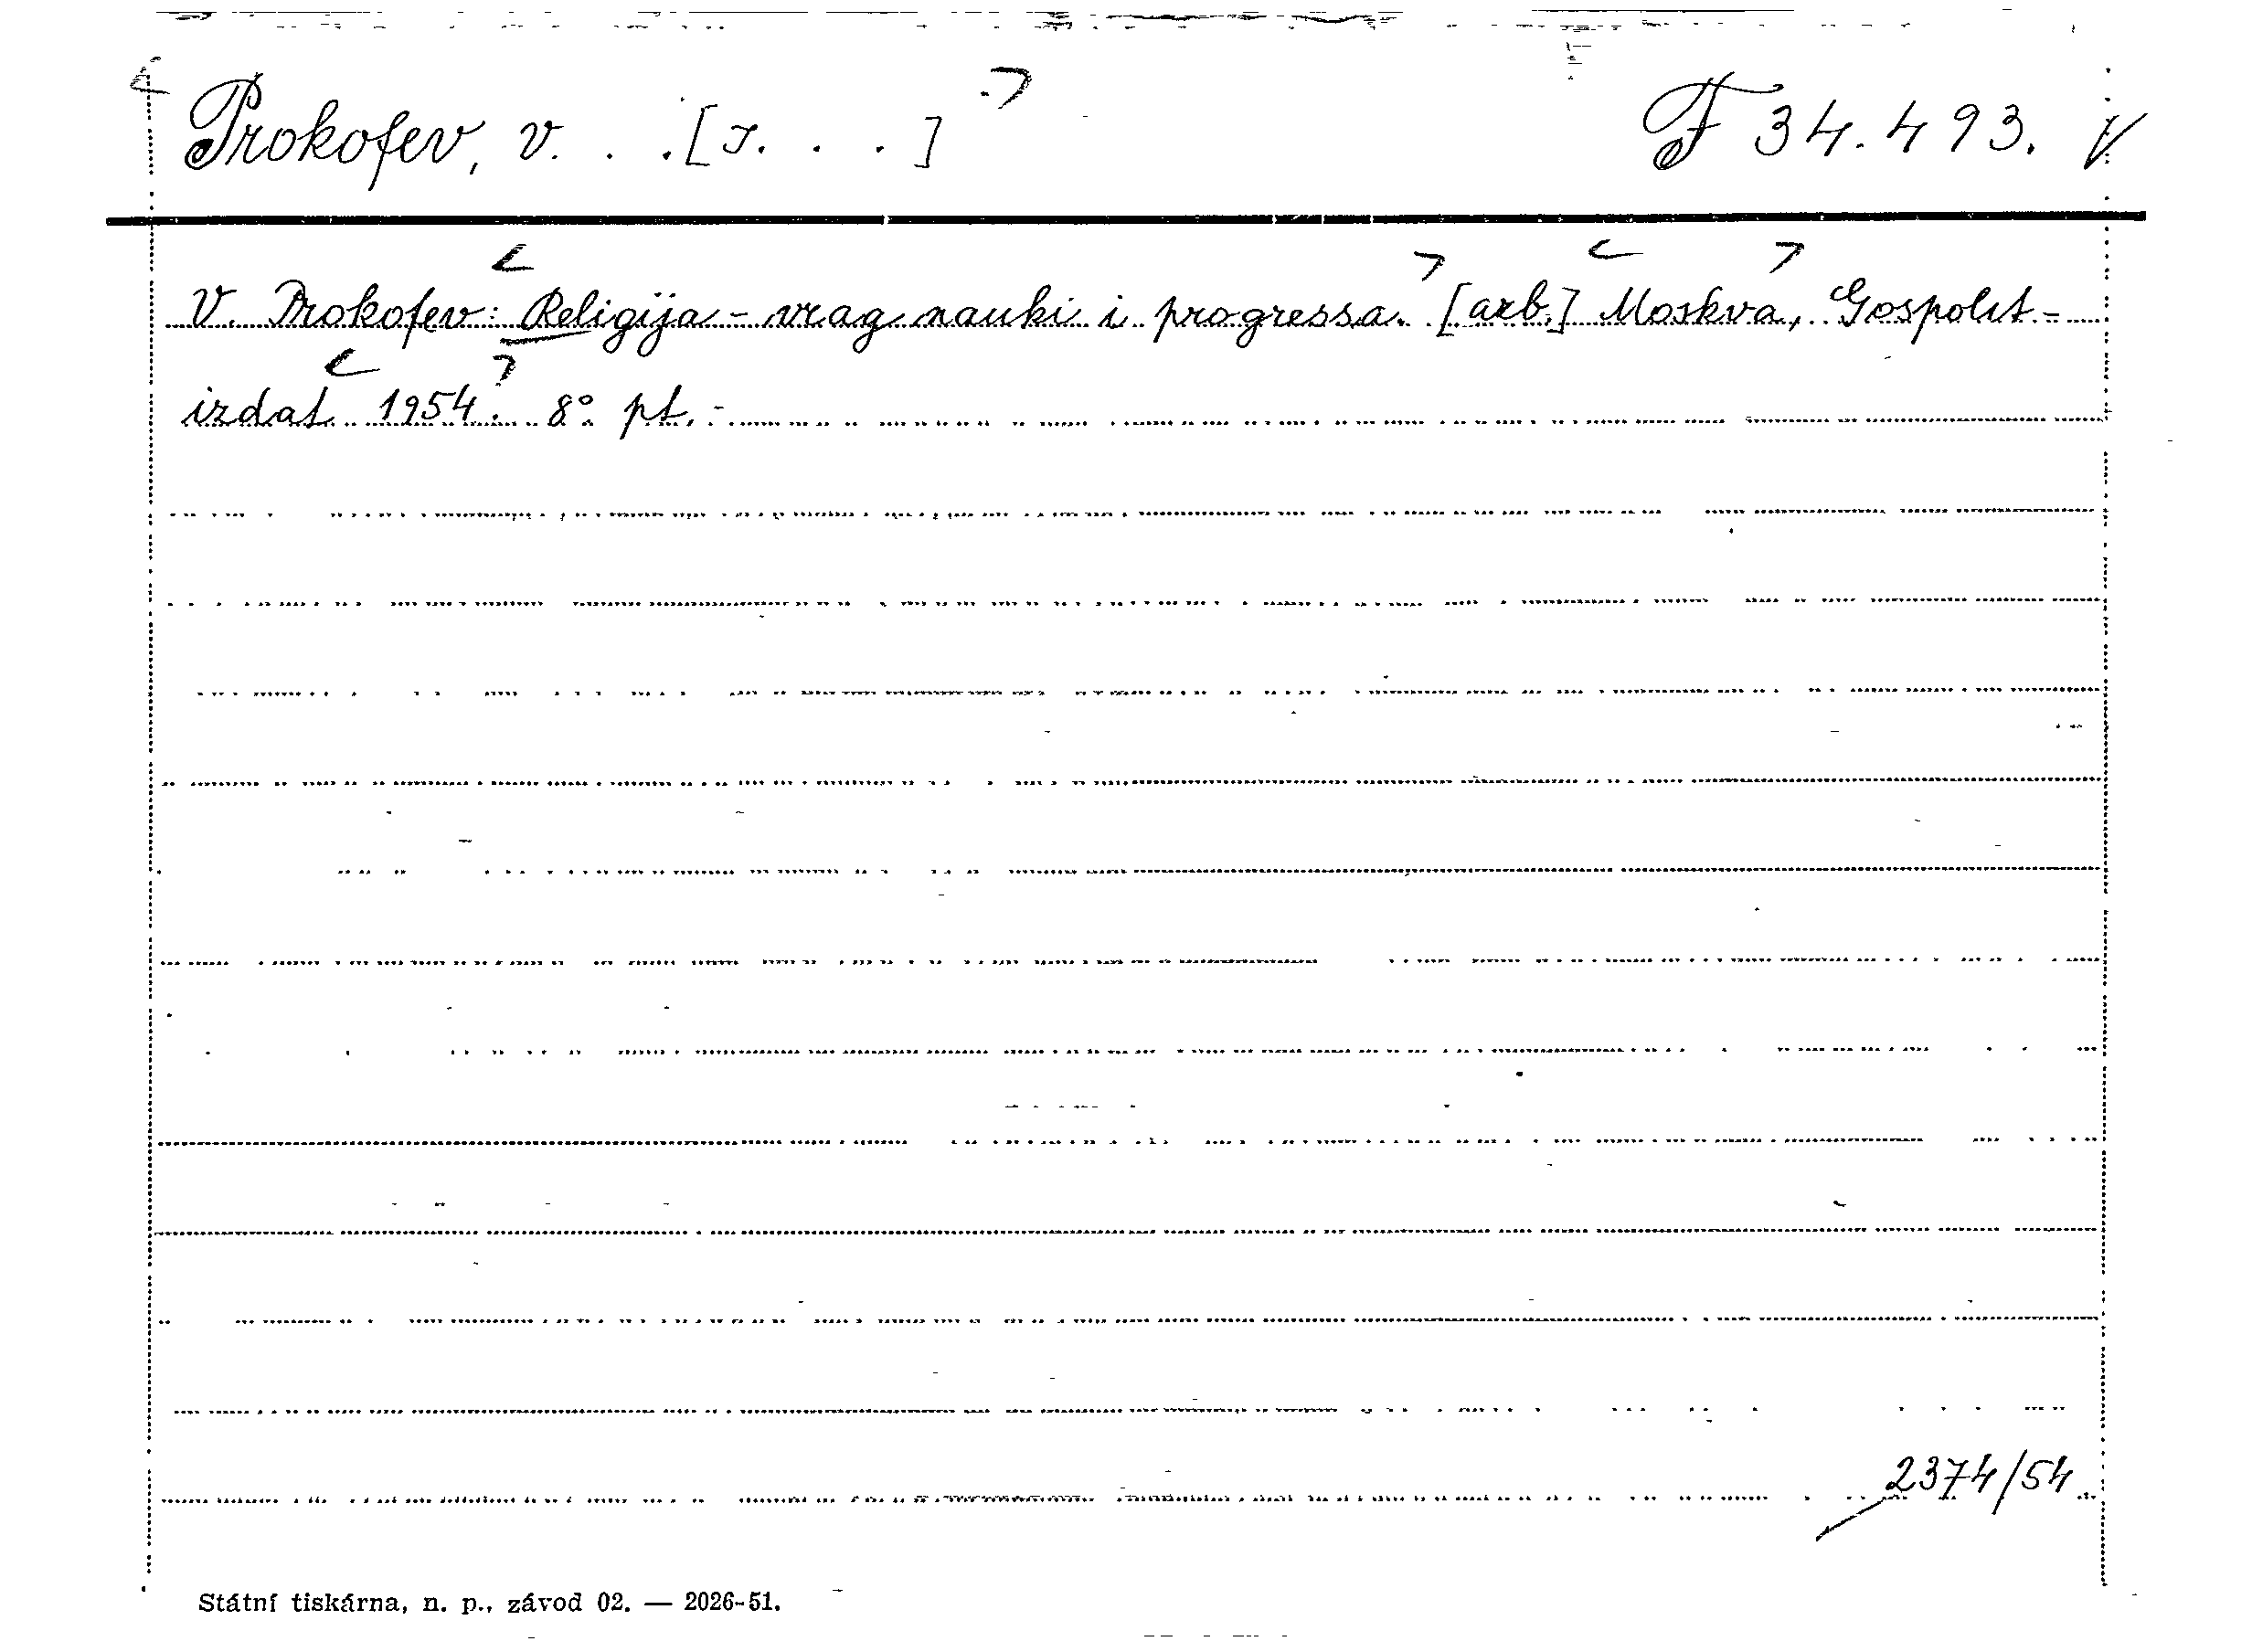 Prokofev, V. . . [J. . . .] F 34.493. V
V. Prokofev: Religija - vrag nauki i progressa. [azb.] Moskva, Gospolit-
izdat 1954. 8°. pt. -
2374/54
Státní tiskárna, n. p., závod 02. — 2026-51.